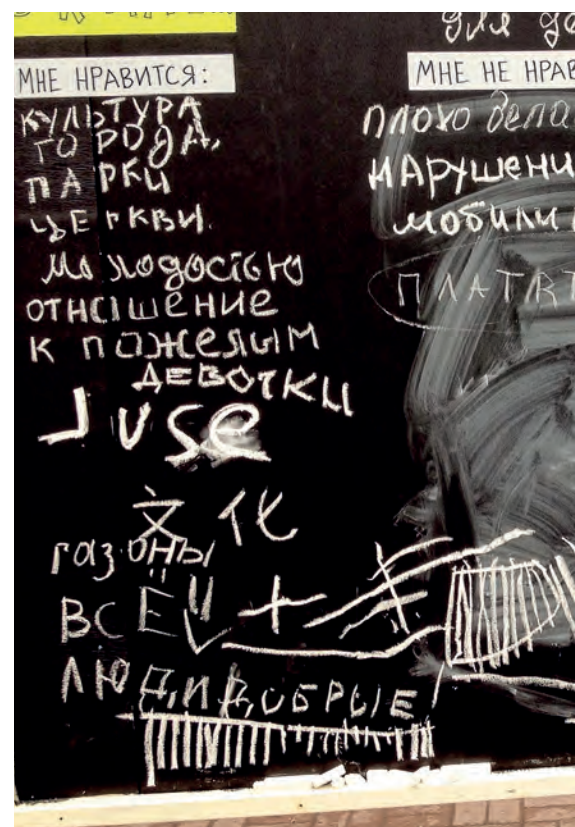 МНЕ НРАВИТСЯ:
КУЛЬТУРА
ГОРОДА,
ПАРКИ
ЦЕРКВИ.
ОТНОШЕНИЕ
К ПОЖЕЛЫМ
ДЕВОЧКИ
JUSE
文化
газоны
ВСЁ
ЛЮДИ ДОБРЫЕ
для де
МНЕ НЕ НРАВ
ПЛОХО дела
НАРУШЕНИ
мобили
ПЛАТ